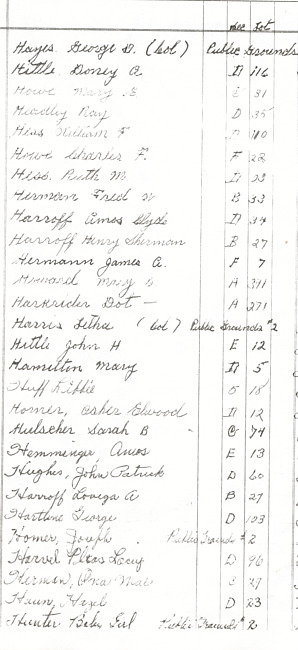 Sec Lot
Hayes George D. (Col) Public Grounds
Hittle Doney A. D 116
Howe Mary E. E 31
Headley Ray D 35
Hess William F. D 110
Howe Charles F. F 22
Hess. Ruth M. D 23
Herman Fred W B 33
Harroff Amos Clyde D 34
Harroff Henry Sherman B 27
Hermann James A. F 7
Howard Mary A 391
Harkrider Dot - A 271
Harris Letha (Col) Public Grounds #2
Hittle John H E 12
Hamilton Mary D 5
Huff Libbie 18
Homer, Asher Elwood D 12
Hulscher Sarah B C 74
Hemminger, Amos E 13
Hughes, John Patrick D 60
Harroff Lovega A B 27
Hartline George D 103
Homer, Joseph Public Grounds # 2
Harvel Lacey D 96
Herman, Ona Mae E 27
Haun, Hazel D 23
Hunter Baby Girl Public Grounds # 2